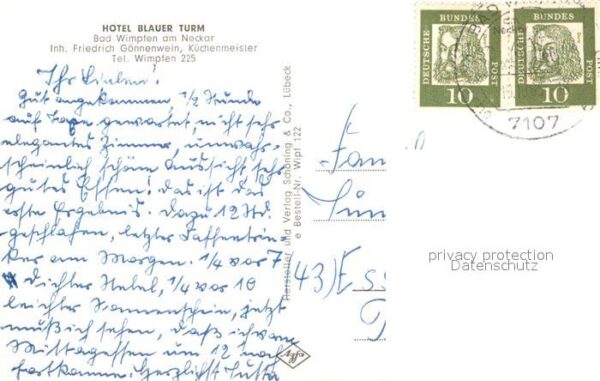 HOTEL BLAUER TURM
Bad Wimpfen am Neckar
Inh. Friedrich Gönnenwein, Küchenmeister
Tel. Wimpfen 225
Ihr Lieben!
Gut angekommen, 1/2 Stunde
auf gewartet, nicht sehr
elegantes Zimmer, unwahr-
scheinlich schöne Aussicht, sehr
gutes Essen! das ist das
erste Ergebnis. Dazu 12 Std.
geschlafen, letzter Kaffeetrin-
ker am Morgen. 1/4 vor 7
dichter Nebel, 1/4 vor 10
leichter Sonnenschein, jetzt
muß ich sehen, daß ich vom
Mittagessen um 12 noch
fortkomme. Herzlichst
Hersteller und Verlag Schöning & Co., Lübeck
Bestell-Nr. Wipf 122
Agfa
DEUTSCHE BUNDES POST
10
DEUTSCHE BUNDES POST
10
7107
Fam
43) Ess
privacy protection
Datenschutz